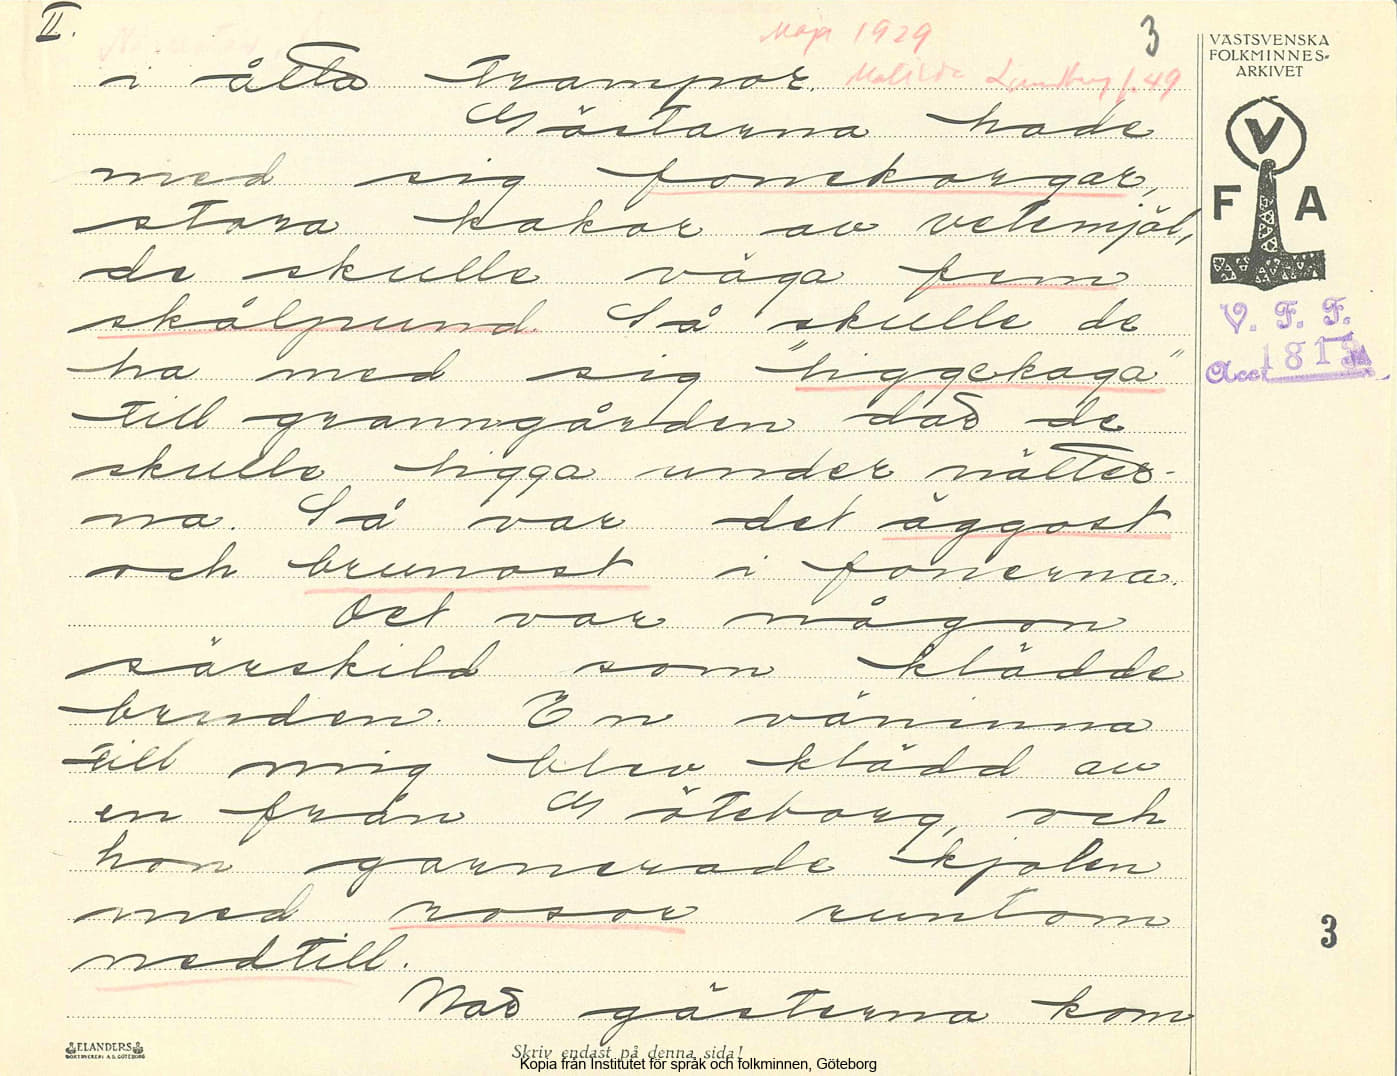 II.
Maja 1929
3
Matilda Lundberg f. 49
i åtta trampor.
Gästarna hade
med sig fonekorgar,
stora kakor av vetemjöl,
de skulle väga fem
skålpund. Så skulle de
ha med sig "liggekaga"
till granngården dar de
skulle ligga under nätter-
na. Så var det äggost
och brunost i fonerna.
Det var någon
särskild som klädde
bruden. En väninna
till mig blev klädd av
en från Göteborg, och
hon garnerade kjolen
med rosor runtom
nedtill.
När gästerna kom
VÄSTSVENSKA
FOLKMINNES-
ARKIVET
V
F A
V. F. F.
Acc. 1815
3
ELANDERS
BOKTRYCKERI A.B. GÖTEBORG
Skriv endast på denna sida!
Kopia från Institutet för språk och folkminnen, Göteborg